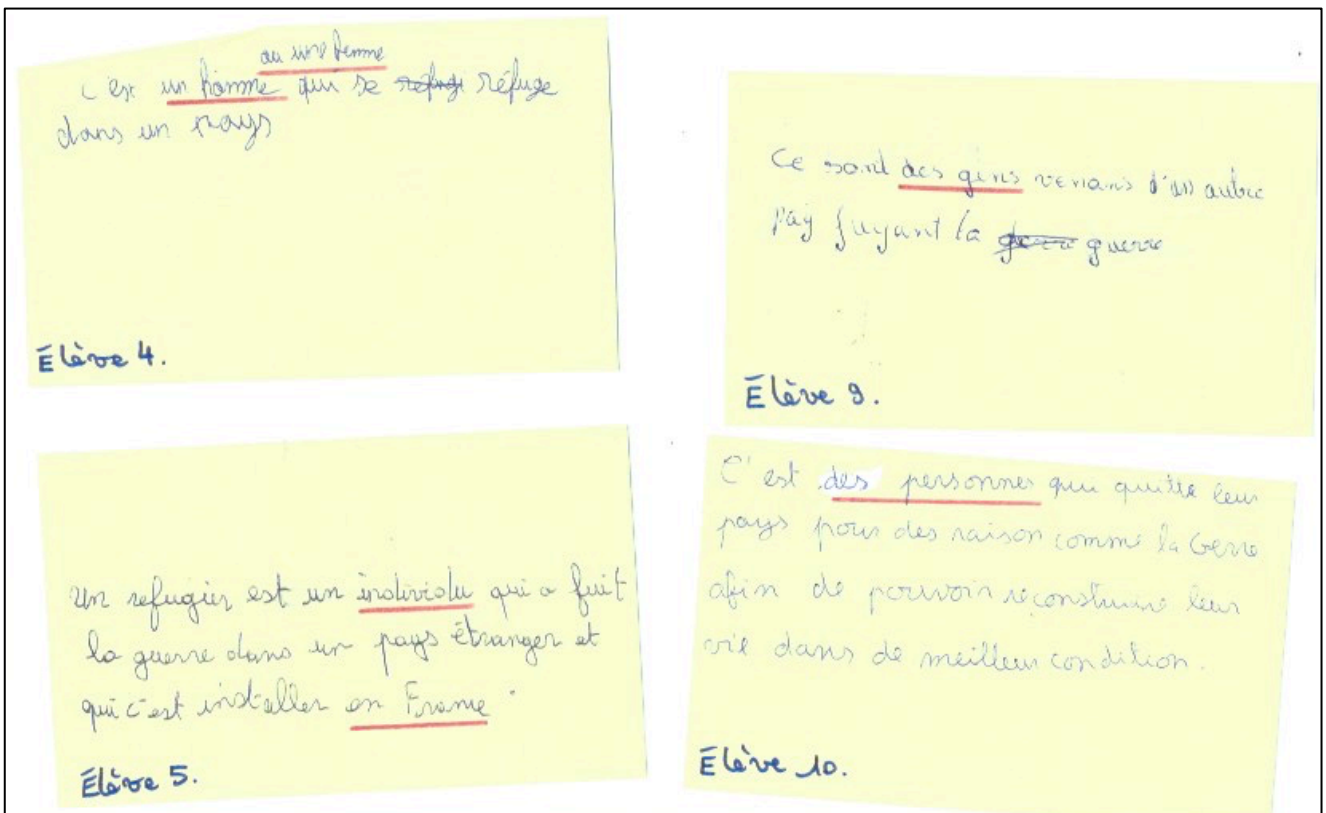 au une femme
C'est un homme qui se réfuge
dans un pays
Élève 4.
Ce sont des gens venans d'un autre
pay fuyant la guerre
Élève 9.
Un refugier est un individu qui a fuit
la guerre dans un pays étranger et
qui c'est installer en France.
Élève 5.
C'est des personnes qui quitte leur
pays pour des raison comme la Gerre
afin de pouvoir reconstruire leur
vie dans de meilleur condition.
Élève 10.